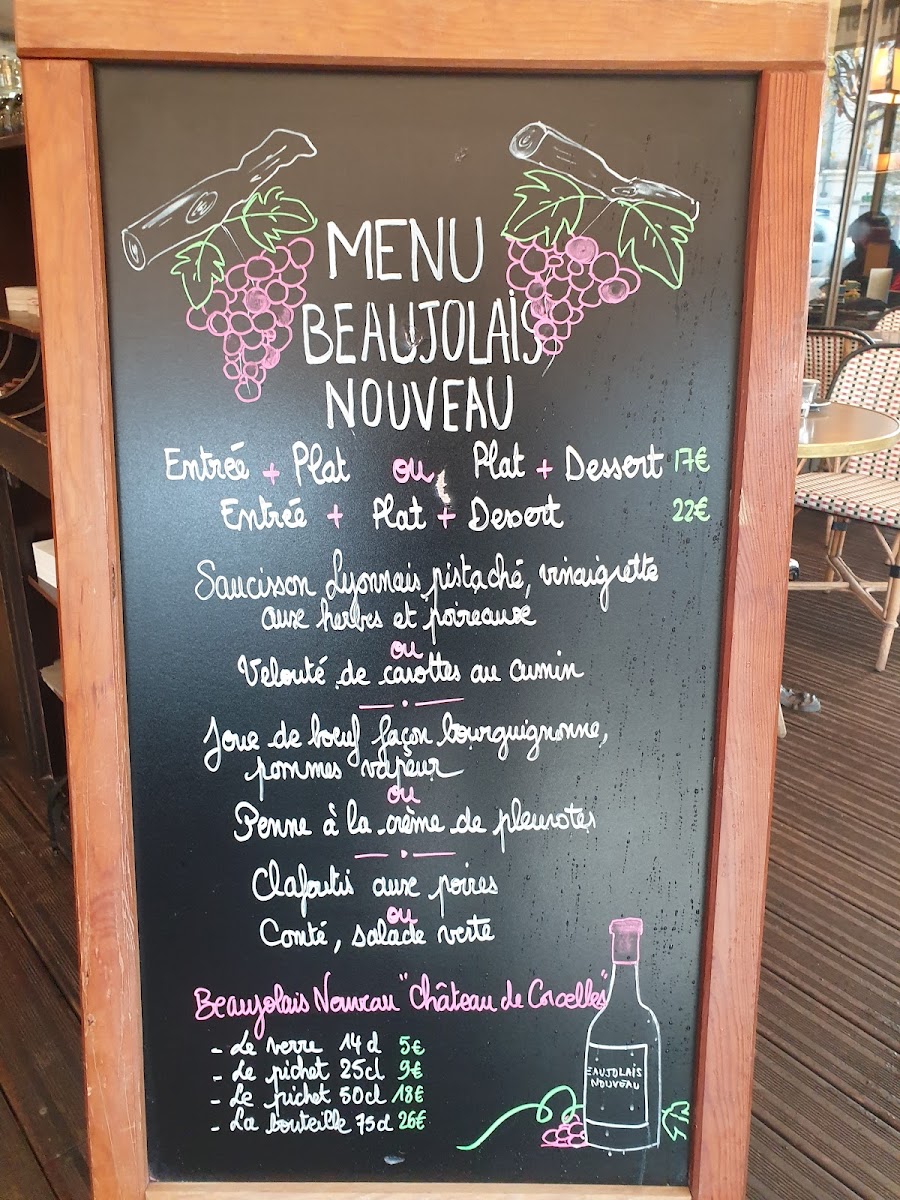 MENU
BEAUJOLAIS
NOUVEAU
Entrée + Plat ou Plat + Dessert 17€
Entrée + Plat + Dessert 22€
Saucisson Lyonnais pistaché, vinaigrette
aux herbes et poireaux
ou
Velouté de carottes au cumin
Joue de boeuf façon bourguignonne,
pommes vapeur
ou
Penne à la crème de pleurotes
Clafoutis aux poires
ou
Comté, salade verte
Beaujolais Nouveau "Château de Corcelles"
- Le verre 14cl 5€
- Le pichet 25cl 9€
- Le pichet 50cl 18€
- La bouteille 75cl 26€
EAUJOLAIS
NOUVEAU